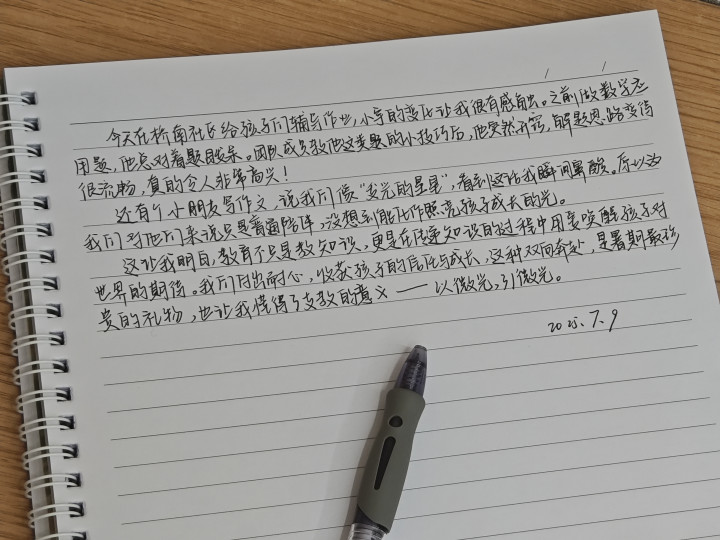 今天在桥南社区给孩子们辅导作业,小宇的变化让我很有感触。之前做数学应
用题,他总对着题目发呆。团队成员教他这类题的小技巧后,他突然开窍,解题思路变得
很流畅,真的令人非常高兴!
还有个小朋友写作文,说我们像“发光的星星”,看到这话我瞬间鼻酸。原以为
我们对他们来说只是普通陪伴,没想到能化作照亮孩子成长的光。
这让我明白,教育不只是教知识,更是在传递知识的过程中用爱唤醒孩子对
世界的期待。我们付出耐心,收获孩子的信任与成长,这种双向奔赴,是暑期最珍
贵的礼物,也让我懂得了支教的意义——以微光,引微光。
2025.7.9